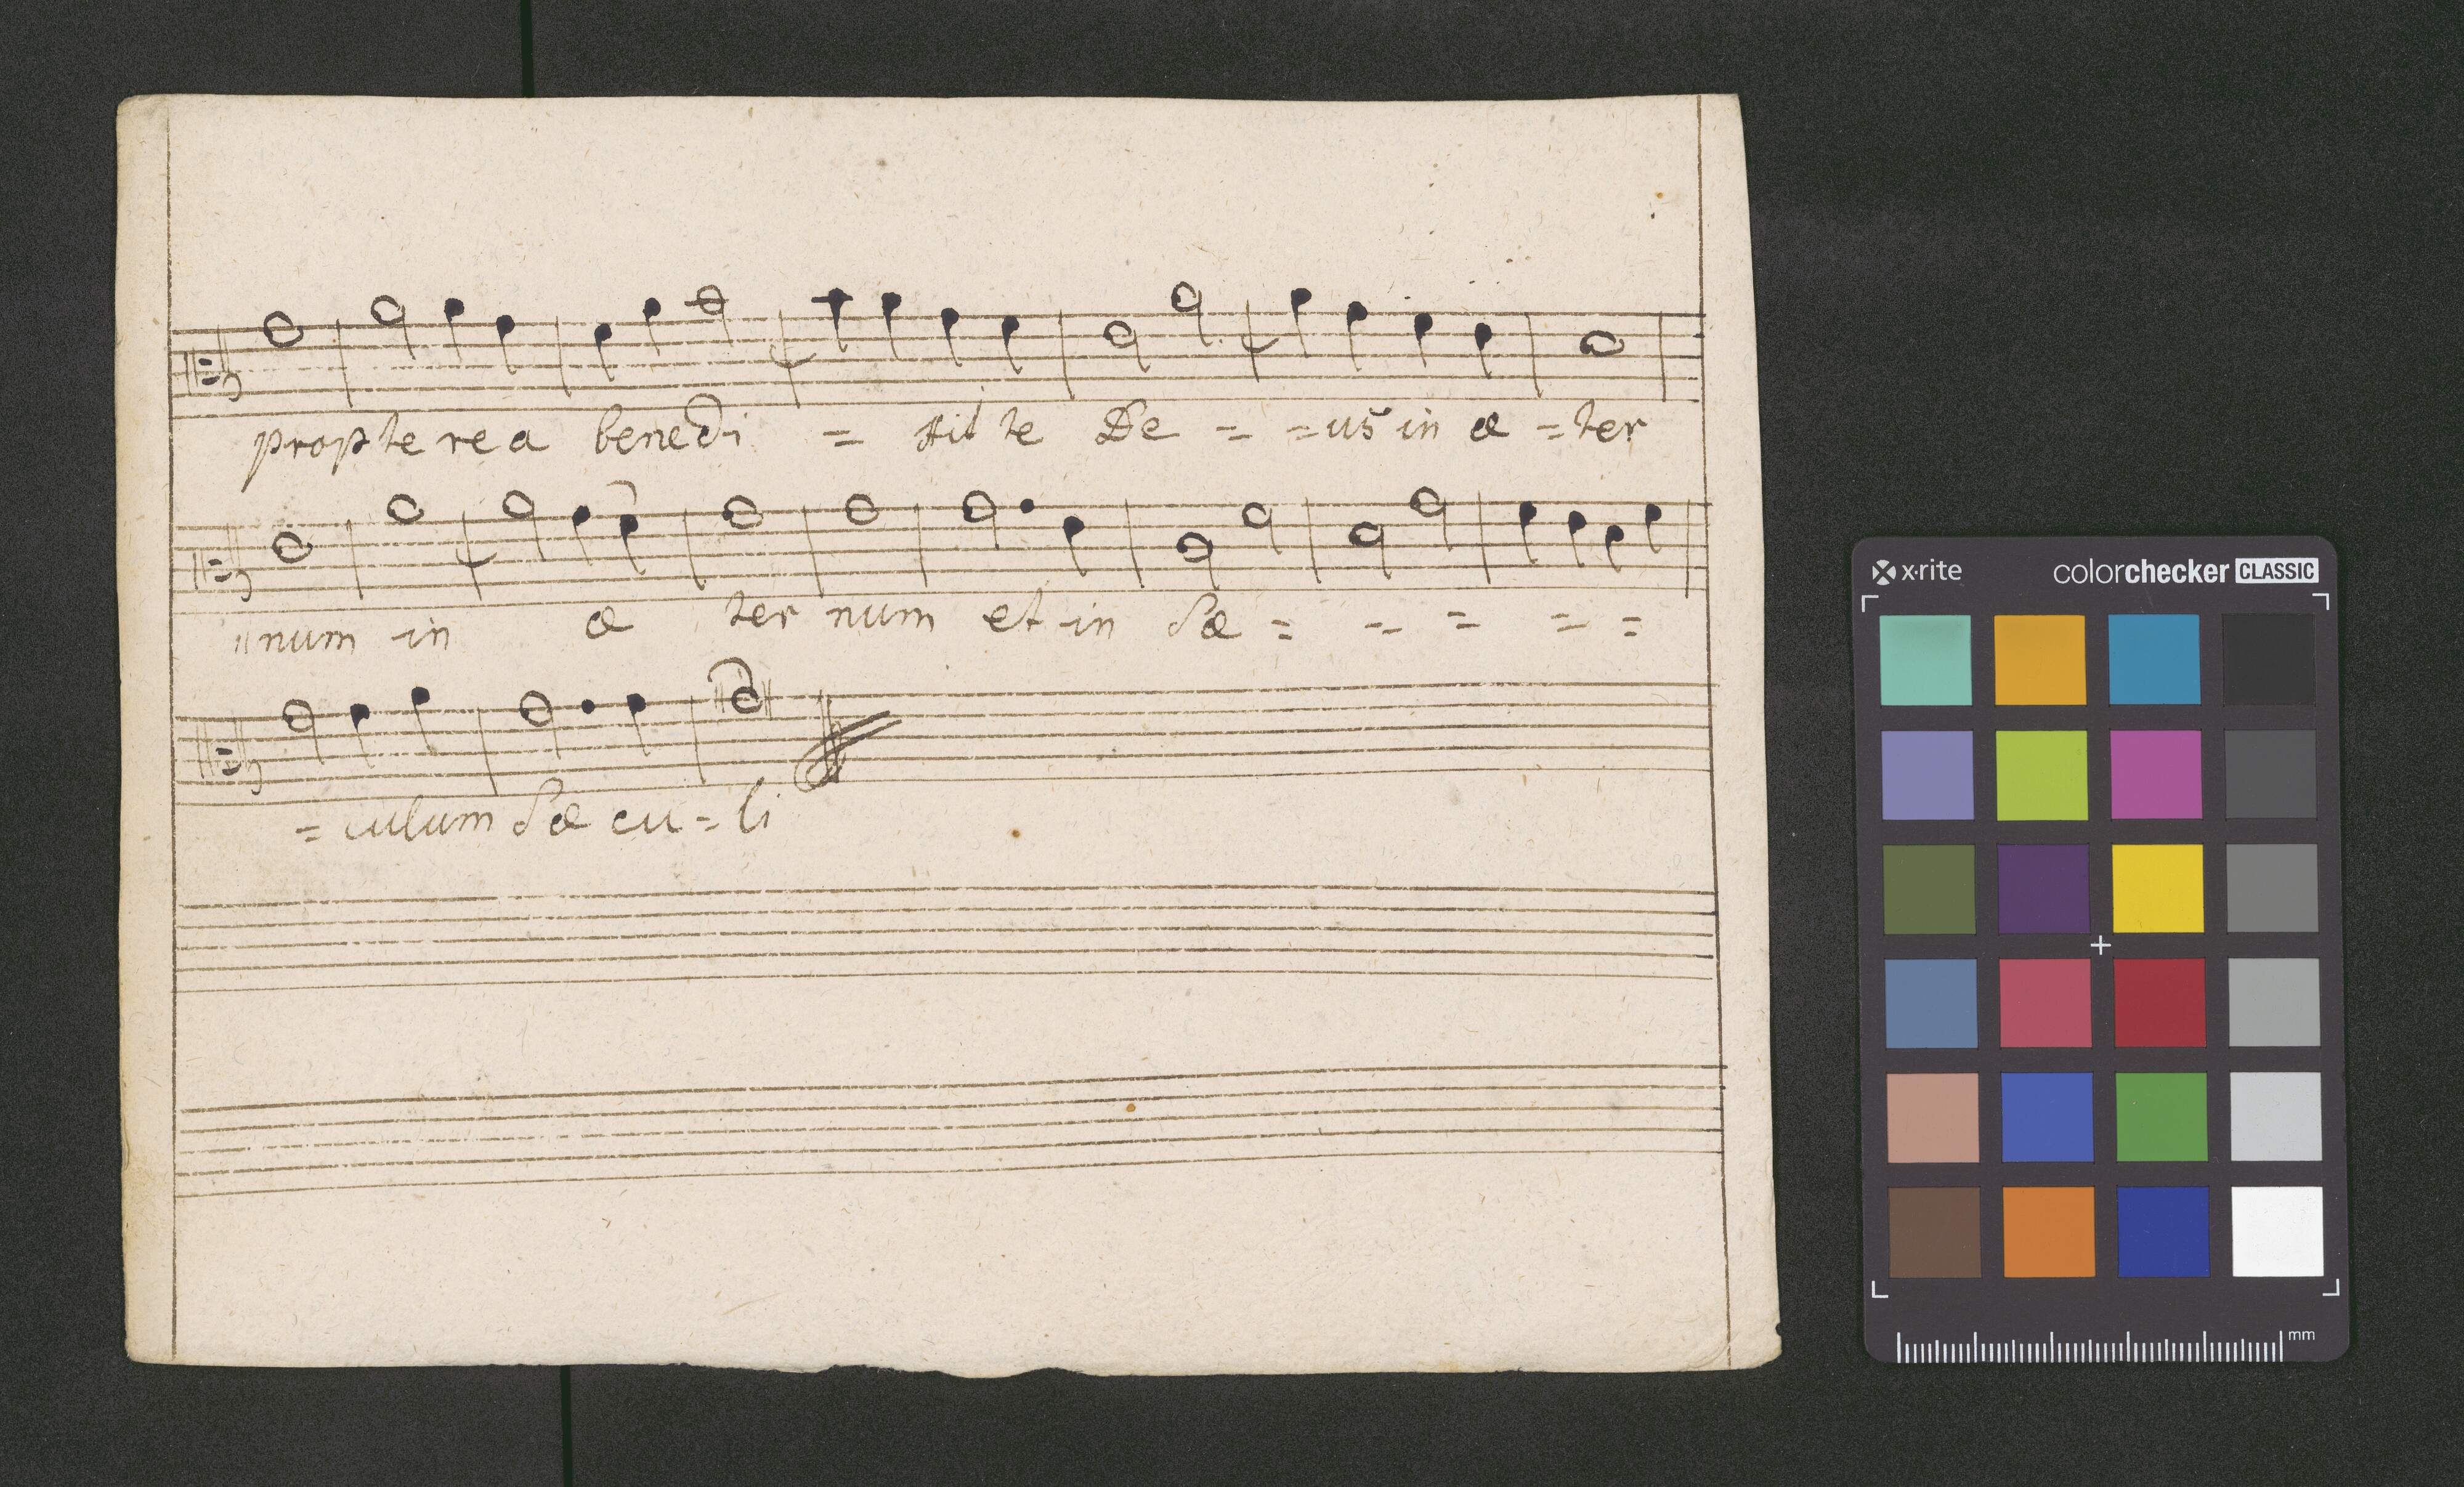 propterea benedi = xit te De = = us in æ = ter
"num in æ ter num et in Sæ = = = = =
= culum Sæ cu = li
x·rite colorchecker CLASSIC
mm